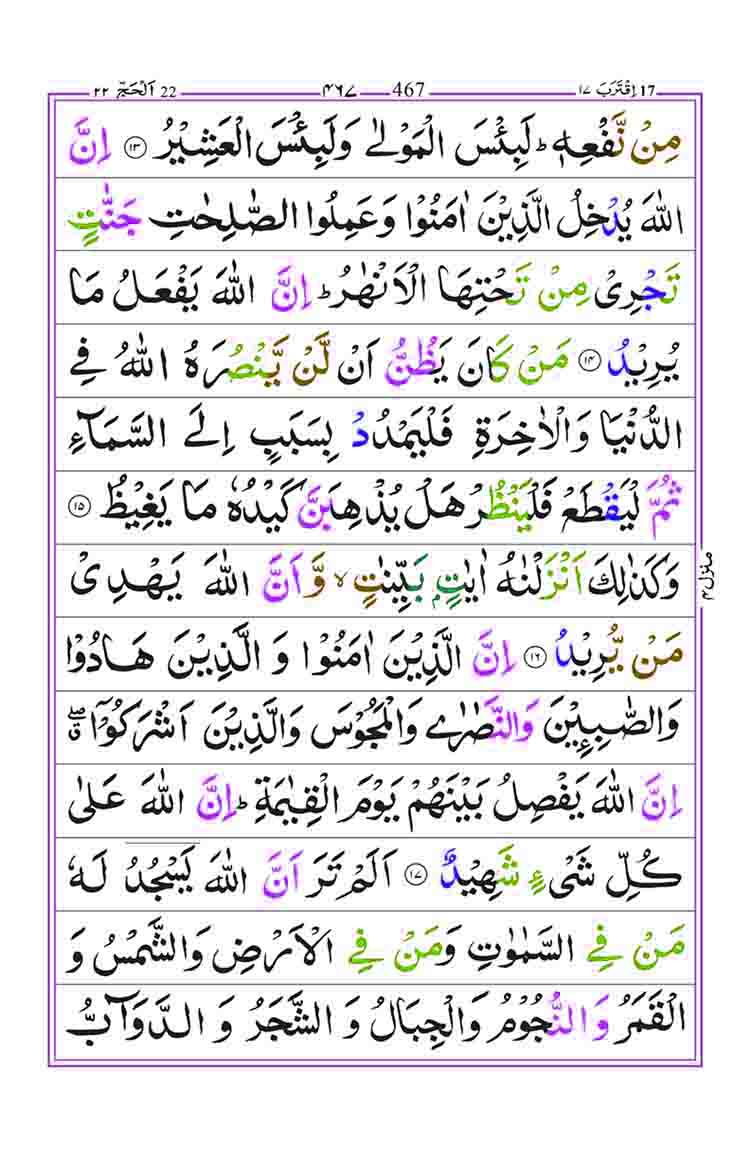 17 اِقْتَرَبَ ١٧ 467 ۴۶۷ 22 اَلْحَجّ ٢٢
مِنْ نَّفْعِهٖ ؕ لَبِئْسَ الْمَوْلٰى وَلَبِئْسَ الْعَشِيْرُ ۝۱۳ اِنَّ
اللّٰهَ يُدْخِلُ الَّذِيْنَ اٰمَنُوْا وَعَمِلُوا الصّٰلِحٰتِ جَنّٰتٍ
تَجْرِىْ مِنْ تَحْتِهَا الْاَنْهٰرُ ؕ اِنَّ اللّٰهَ يَفْعَلُ مَا
يُرِيْدُ ۝۱۴ مَنْ كَانَ يَظُنُّ اَنْ لَّنْ يَّنْصُرَهُ اللّٰهُ فِى
الدُّنْيَا وَالْاٰخِرَةِ فَلْيَمْدُدْ بِسَبَبٍ اِلَى السَّمَآءِ
ثُمَّ لْيَقْطَعْ فَلْيَنْظُرْ هَلْ يُذْهِبَنَّ كَيْدُهٗ مَا يَغِيْظُ ۝۱۵
وَكَذٰلِكَ اَنْزَلْنٰهُ اٰيٰتٍۭ بَيِّنٰتٍ ۙ وَّاَنَّ اللّٰهَ يَهْدِىْ
مَنْ يُّرِيْدُ ۝۱۶ اِنَّ الَّذِيْنَ اٰمَنُوْا وَالَّذِيْنَ هَادُوْا
وَالصّٰبِـِٕيْنَ وَالنَّصٰرٰى وَالْمَجُوْسَ وَالَّذِيْنَ اَشْرَكُوْۤا ۖۗ
اِنَّ اللّٰهَ يَفْصِلُ بَيْنَهُمْ يَوْمَ الْقِيٰمَةِ ؕ اِنَّ اللّٰهَ عَلٰى
كُلِّ شَىْءٍ شَهِيْدٌ ۝۱۷ اَلَمْ تَرَ اَنَّ اللّٰهَ يَسْجُدُ لَهٗ
مَنْ فِى السَّمٰوٰتِ وَمَنْ فِى الْاَرْضِ وَالشَّمْسُ وَ
الْقَمَرُ وَالنُّجُوْمُ وَالْجِبَالُ وَالشَّجَرُ وَالدَّوَآبُّ
منزل ۴